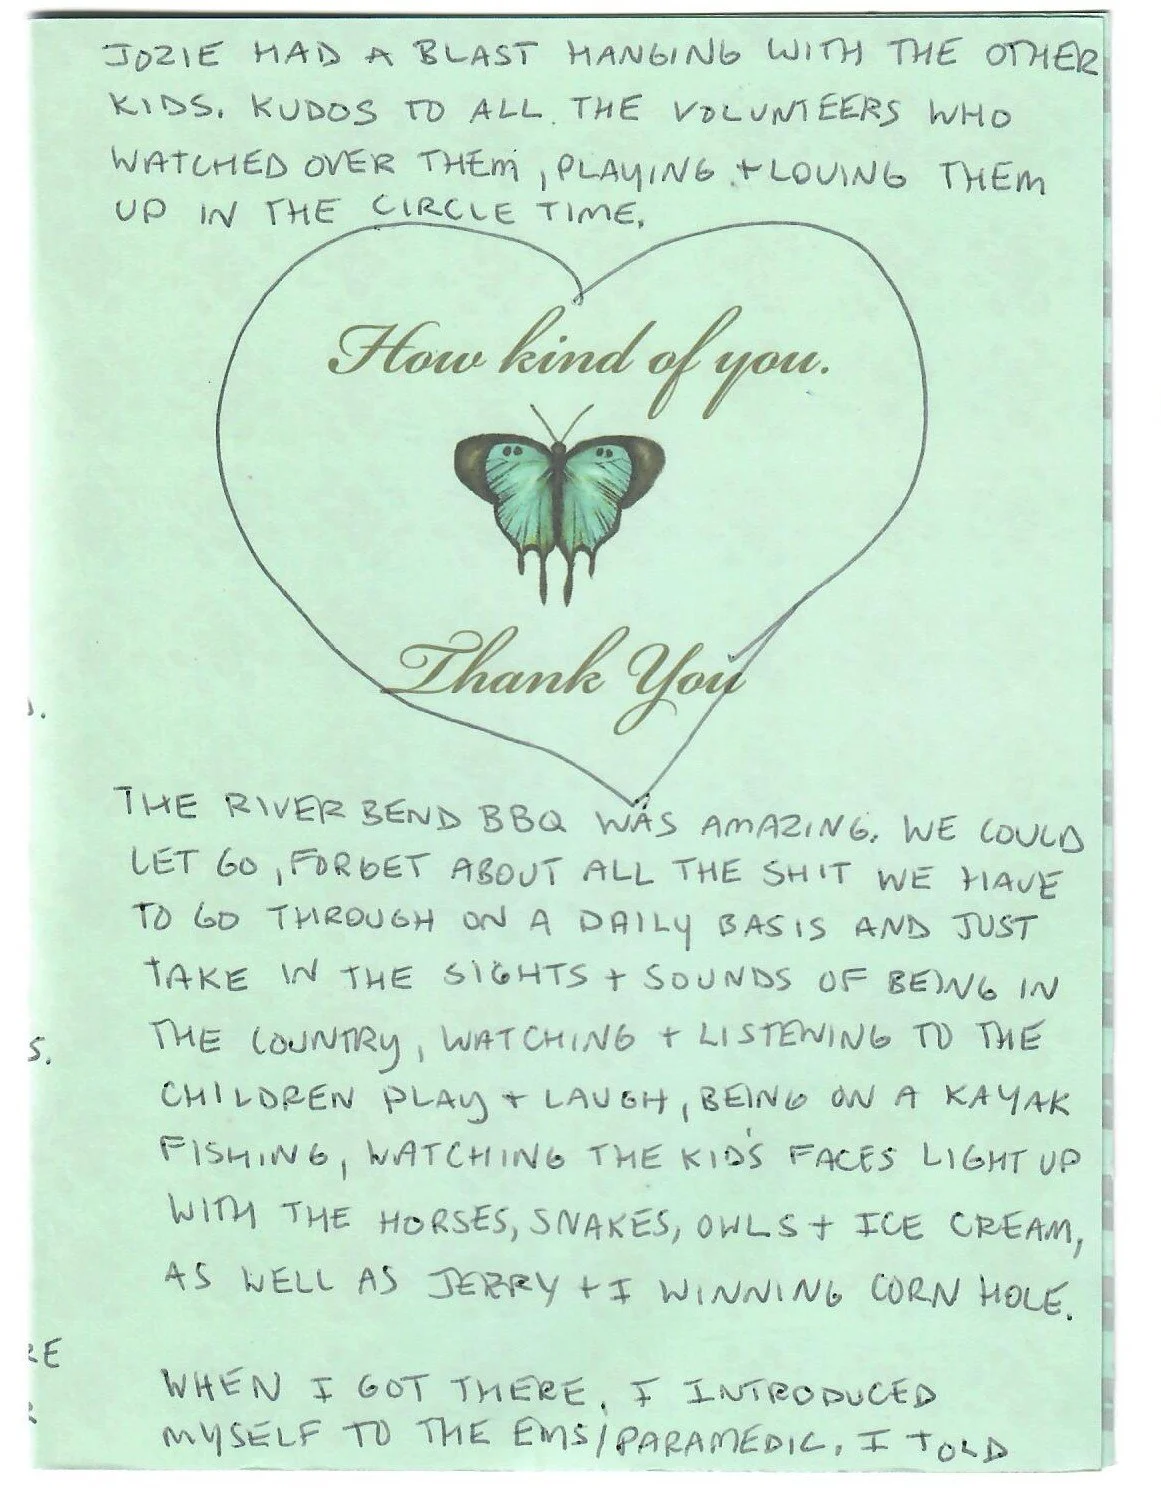 JOZIE HAD A BLAST HANGING WITH THE OTHER
KIDS. KUDOS TO ALL THE VOLUNTEERS WHO
WATCHED OVER THEM, PLAYING + LOVING THEM
UP IN THE CIRCLE TIME.
How kind of you.
Thank You
THE RIVER BEND BBQ WAS AMAZING. WE COULD
LET GO, FORGET ABOUT ALL THE SHIT WE HAVE
TO GO THROUGH ON A DAILY BASIS AND JUST
TAKE IN THE SIGHTS + SOUNDS OF BEING IN
THE COUNTRY, WATCHING + LISTENING TO THE
S.
CHILDREN PLAY + LAUGH, BEING ON A KAYAK
FISHING, WATCHING THE KID'S FACES LIGHT UP
WITH THE HORSES, SNAKES, OWLS + ICE CREAM,
AS WELL AS JERRY + I WINNING CORN HOLE.
RE
WHEN I GOT THERE, I INTRODUCED
MYSELF TO THE EMS/PARAMEDIC. I TOLD